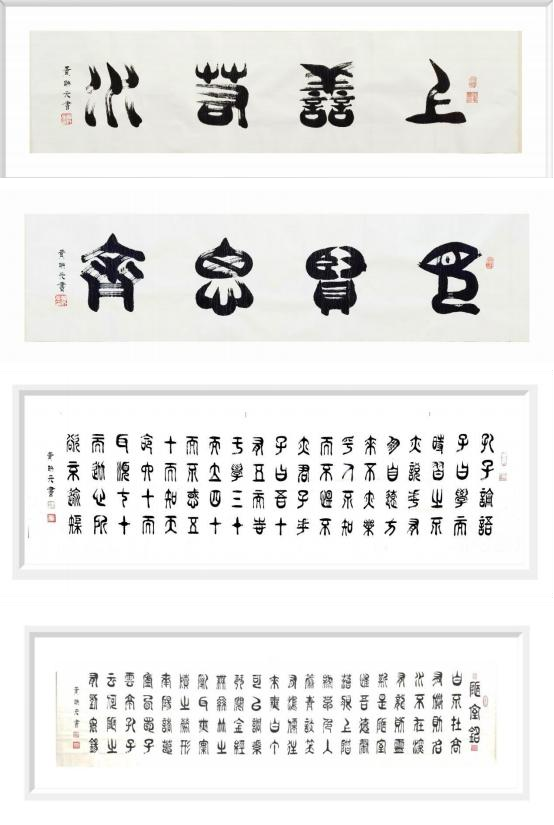 上善若水
書
見賢思齊
書
孔子論語
子曰學而
時習之不
亦說乎有
朋自遠方
來不亦樂
乎人不知
而不慍不
亦君子乎
子曰吾十
有五而志
于學三十
而立四十
而不惑五
十而知天
命六十而
耳順七十
而從心所
欲不踰矩
書
陋室銘
山不在高
有僊則名
水不在深
有龍則靈
斯是陋室
惟吾德馨
苔痕上階
綠草色入
簾青談笑
有鴻儒往
來無白丁
可以調素
琴閱金經
無絲竹之
亂耳無案
牘之勞形
南陽諸葛
廬西蜀子
雲亭孔子
云何陋之
有
書